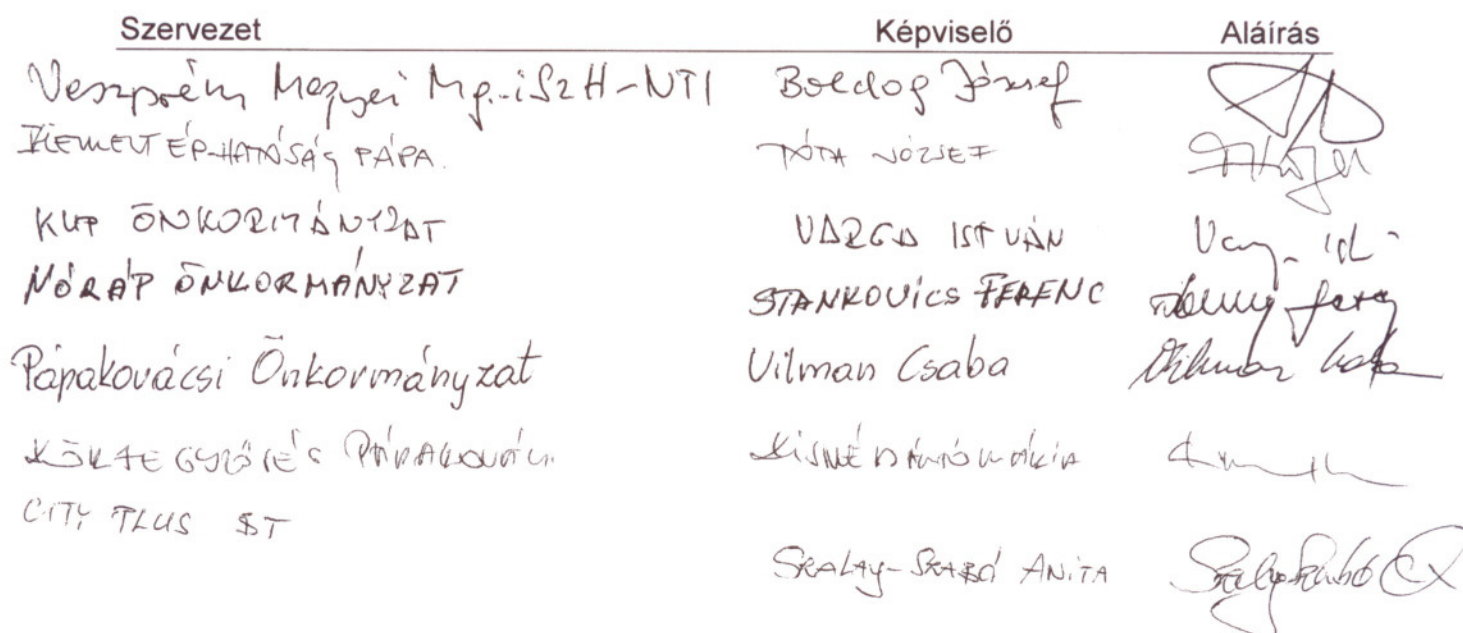 Szervezet Képviselő Aláírás
Veszprém Megyei Mg.-i SzH-NTI Boldog József
KIEMELT ÉP-HATÓSÁG PÁPA. TÓTH JÓZSEF
KUP ÖNKORMÁNYZAT VARGA ISTVÁN
NÓRÁP ÖNKORMÁNYZAT STANKOVICS FERENC
Pápakovácsi Önkormányzat Vilman Csaba
KÖRJEGYZŐSÉG PÁPAKOVÁCSI KISNÉ MÁRIA
CITY PLUS BT
SZALAY-SZABÓ ANITA